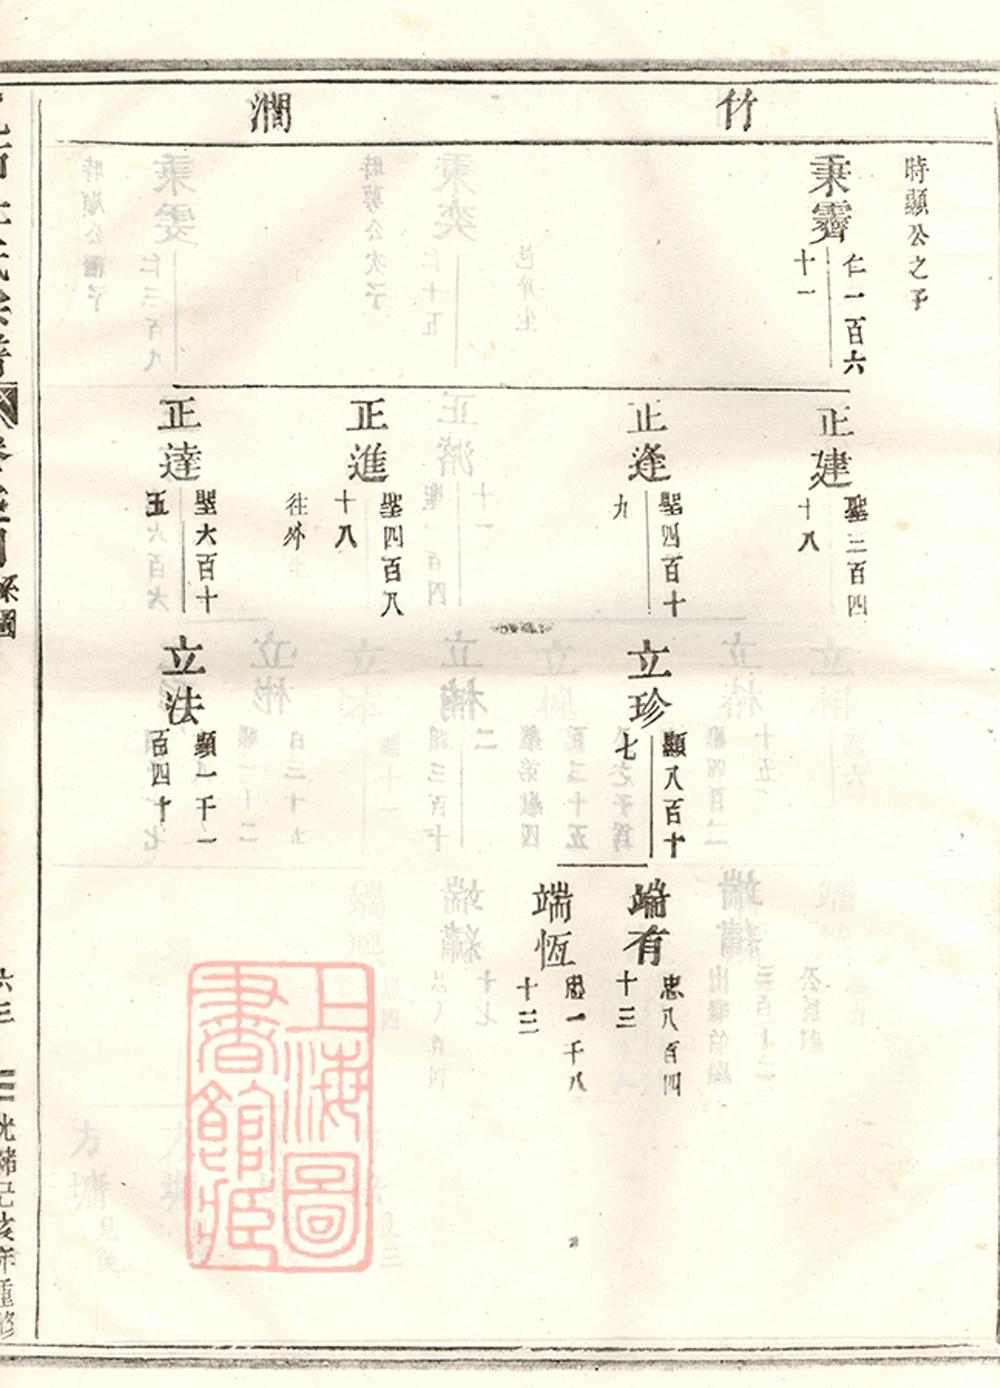 竹
澗
時顯公之子
秉霽
仁一百六
十一
正建
聖二百四
十八
正逢
聖四百十
九
正進
聖四百八
十八
往外
正達
聖六百十
五
立珍
顯八百十
七
立法
顯一千一
百四十
端有
忠八百四
十三
端恆
忠一千八
十三
上海圖
書館藏
系圖
光緒己亥年重修